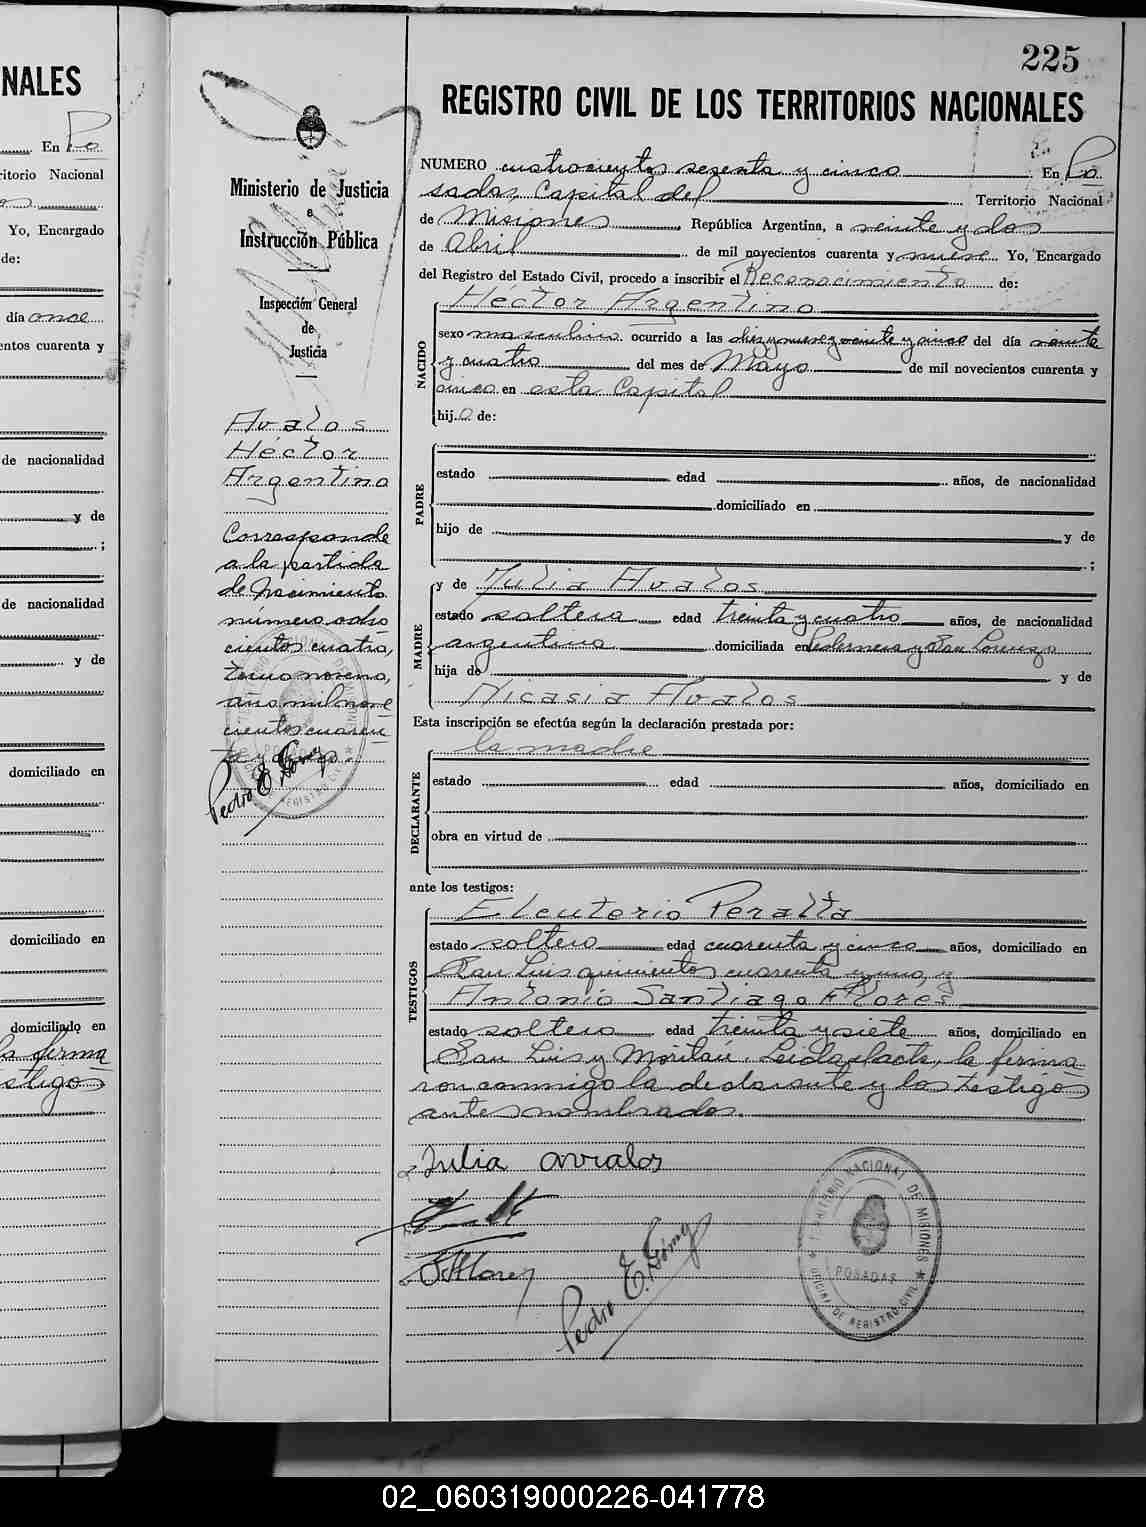 NALES
En Po
ritorio Nacional
Yo, Encargado
de:
día once
entos cuarenta y
de nacionalidad
y de
;
de nacionalidad
y de
domiciliado en
domiciliado en
domiciliado en
la firma
stigos
225
REGISTRO CIVIL DE LOS TERRITORIOS NACIONALES
Ministerio de Justicia
e
Instrucción Pública
Inspección General
de
Justicia
Avalos
Héctor
Argentino
Corresponde
a la partida
de Nacimiento
número ocho
cientos cuatro,
tomo noveno,
año mil nove
cientos cuaren
ta y cinco.
Pedro E. Gómez
NUMERO cuatrocientos sesenta y cinco En Po
sadas, Capital del Territorio Nacional
de Misiones República Argentina, a veinte y dos
de Abril de mil novecientos cuarenta y nueve Yo, Encargado
del Registro del Estado Civil, procedo a inscribir el Reconocimiento de:
NACIDO
Héctor Argentino
sexo masculino ocurrido a las diez y nueve y veinte y cinco del día veinte
y cuatro del mes de Mayo de mil novecientos cuarenta y
cinco en esta Capital
hijo de:
PADRE
estado edad años, de nacionalidad
domiciliado en
hijo de y de
;
MADRE
y de Julia Avalos
estado soltera edad treinta y cuatro años, de nacionalidad
argentina domiciliada en Pedernera y San Lorenzo
hija de y de
Nicasia Avalos
Esta inscripción se efectúa según la declaración prestada por:
DECLARANTE
la madre
estado edad años, domiciliado en
obra en virtud de
ante los testigos:
TESTIGOS
Eleuterio Peralta
estado soltero edad cuarenta y cinco años, domiciliado en
San Luis quinientos cuarenta y uno, y
Antonio Santiago Flores
estado soltero edad treinta y siete años, domiciliado en
San Luis y Moritán. Leída el acta, la firma
ron conmigo la declarante y los testigos
antes nombrados.
Julia avialos
Flores
Pedro E. Gómez
TERRITORIO NACIONAL DE MISIONES
POSADAS
OFICINA DE REGISTRO CIVIL
02_060319000226-041778